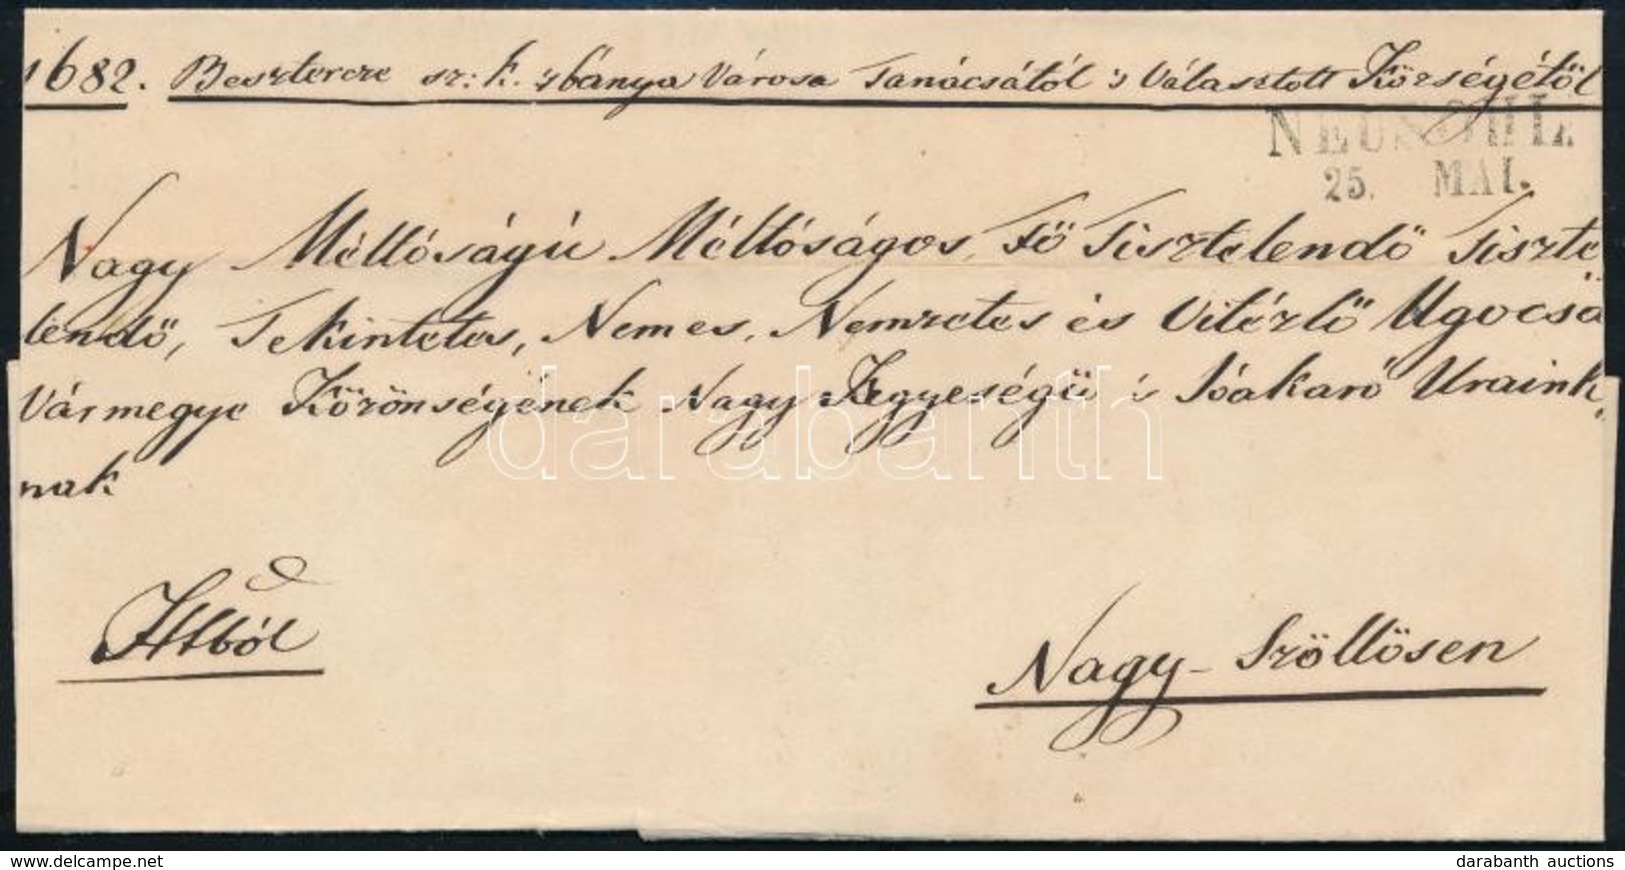 1682. Besztercze sz: k. 's bánya Városa Tanácsától 's Választott Községétől
NEUSOHL.
25. MAI.
Nagy Méltóságú Méltóságos, Fő Tisztelendő Tiszte
lendő, Tekintetes, Nemes, Nemzetes és Vitézlő Ugocsa
Vármegye Közönségének Nagy Kegyességű 's Jóakaró Uraink,
nak
darabanth
Nagy-Szöllősen
www.delcampe.net
darabanth auctions